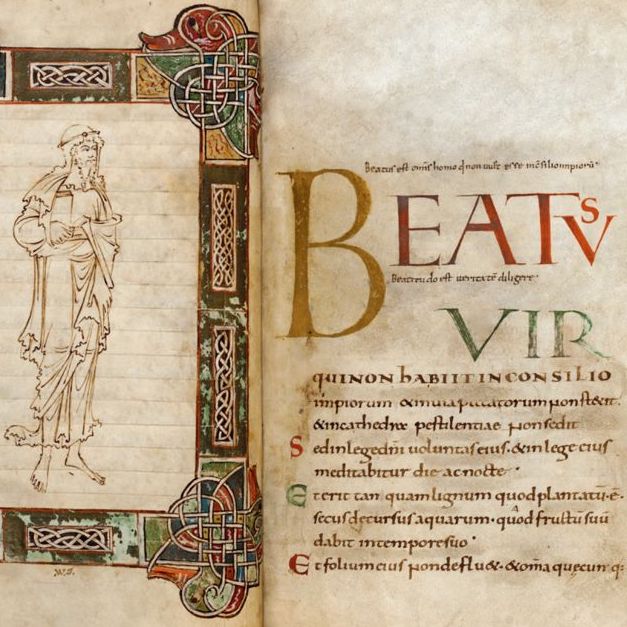 Beatus est omīs homo q̄ non uult esse in c̄silio impiorū·
BEATVS
Beatitudo est ueritatē diligere·
VIR
QUI NON hABIIT IN CONSILIO
impiorum & inuia peccatorum non stetit·
& in cathedra pestilentiae non sedit
Sed in lege dn̄i uoluntas eius· & in lege eius
meditabitur die ac nocte·
Et erit tan quam lignum quod plantatū· ē·
secus decursus aquarum· quod fructū suū
dabit in tempore suo·
Et folium eius non deflu&· & om̄a quęcunq: